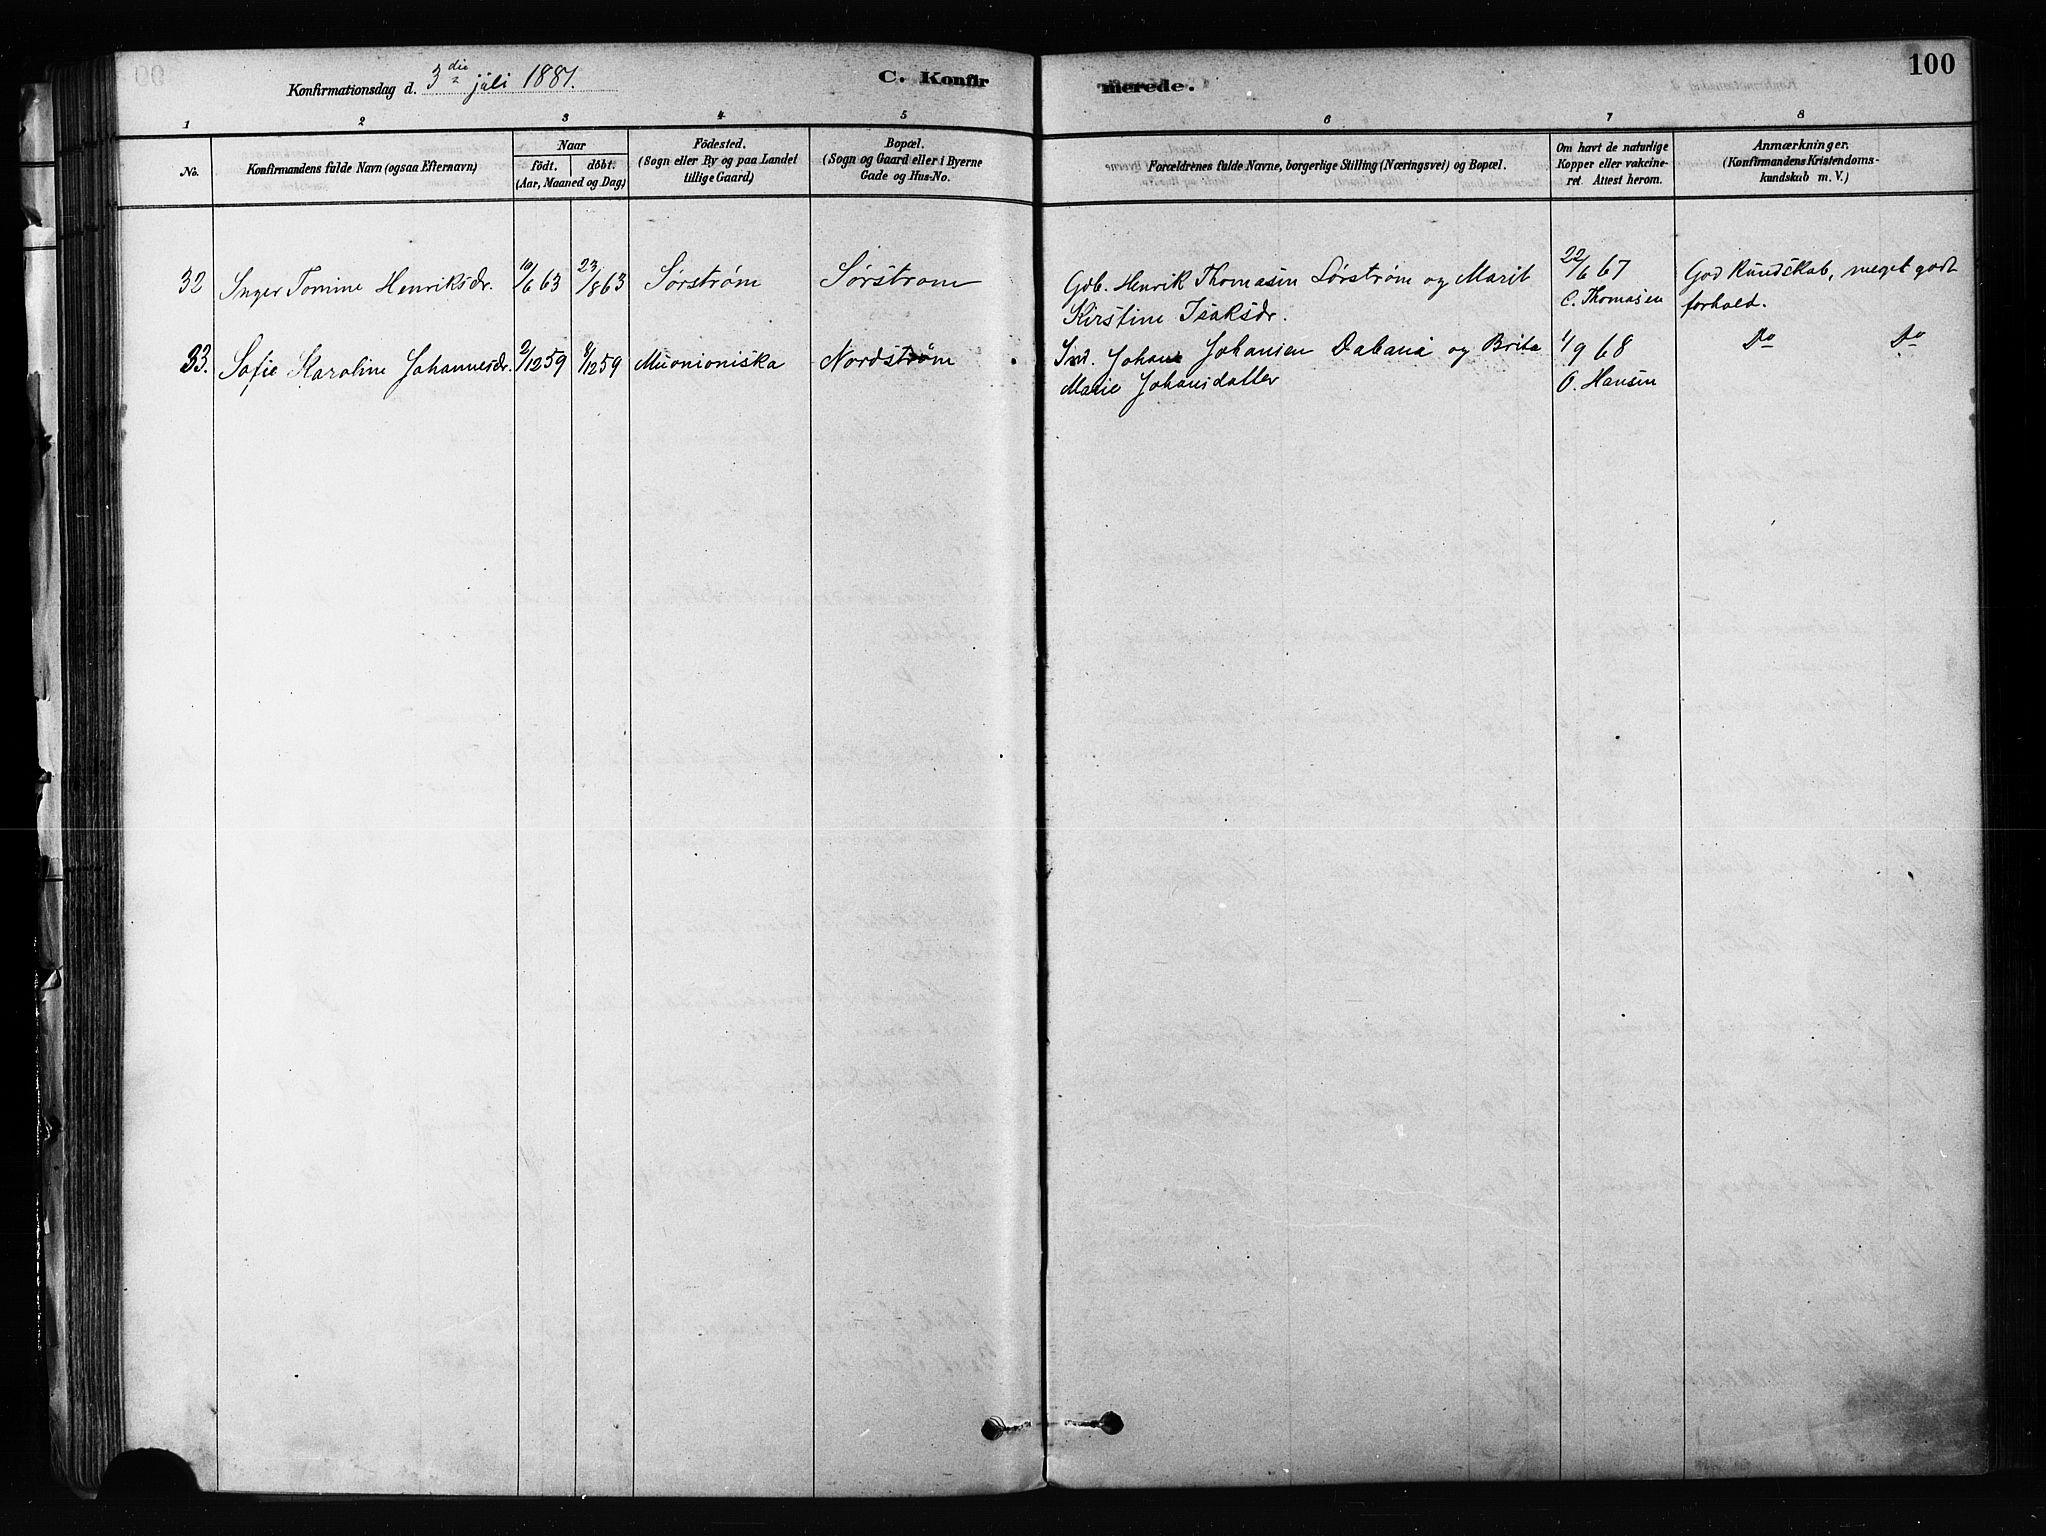 100
Konfirmationsdag d. 3die juli 1881.
C. Konfirmerede.
1 2 3 4 5 6 7 8
No.
Konfirmandens fulde Navn (ogsaa Efternavn)
Naar
födt. döbt.
(Aar, Maaned og Dag)
Födested.
(Sogn eller By og paa Landet
tillige Gaard)
Bopæl.
(Sogn og Gaard eller i Byerne
Gade og Hus-No.
Forældrenes fulde Navne, borgerlige Stilling (Næringsvei) og Bopæl.
Om havt de naturlige
Kopper eller vakcine-
ret. Attest herom.
Anmærkninger.
(Konfirmandens Kristendoms-
kundskab m. V.)
32 Inger Tomine Henriksdr. 10/6 63 23/8 63 Sørstrøm Sørstrøm Gdb. Henrik Thomasen Sørstrøm og Marit 22/6 67 God Kundskab, meget godt
Kirstine Isaksdr. C. Thomasen forhold.
33. Sofie Karoline Johannesdr. 2/12 59 9/12 59 Muonioniska Nordstrøm Ind. Johan Johansen Dabana og Brita 1/9 68 Do Do
Marie Johansdatter O. Hansen